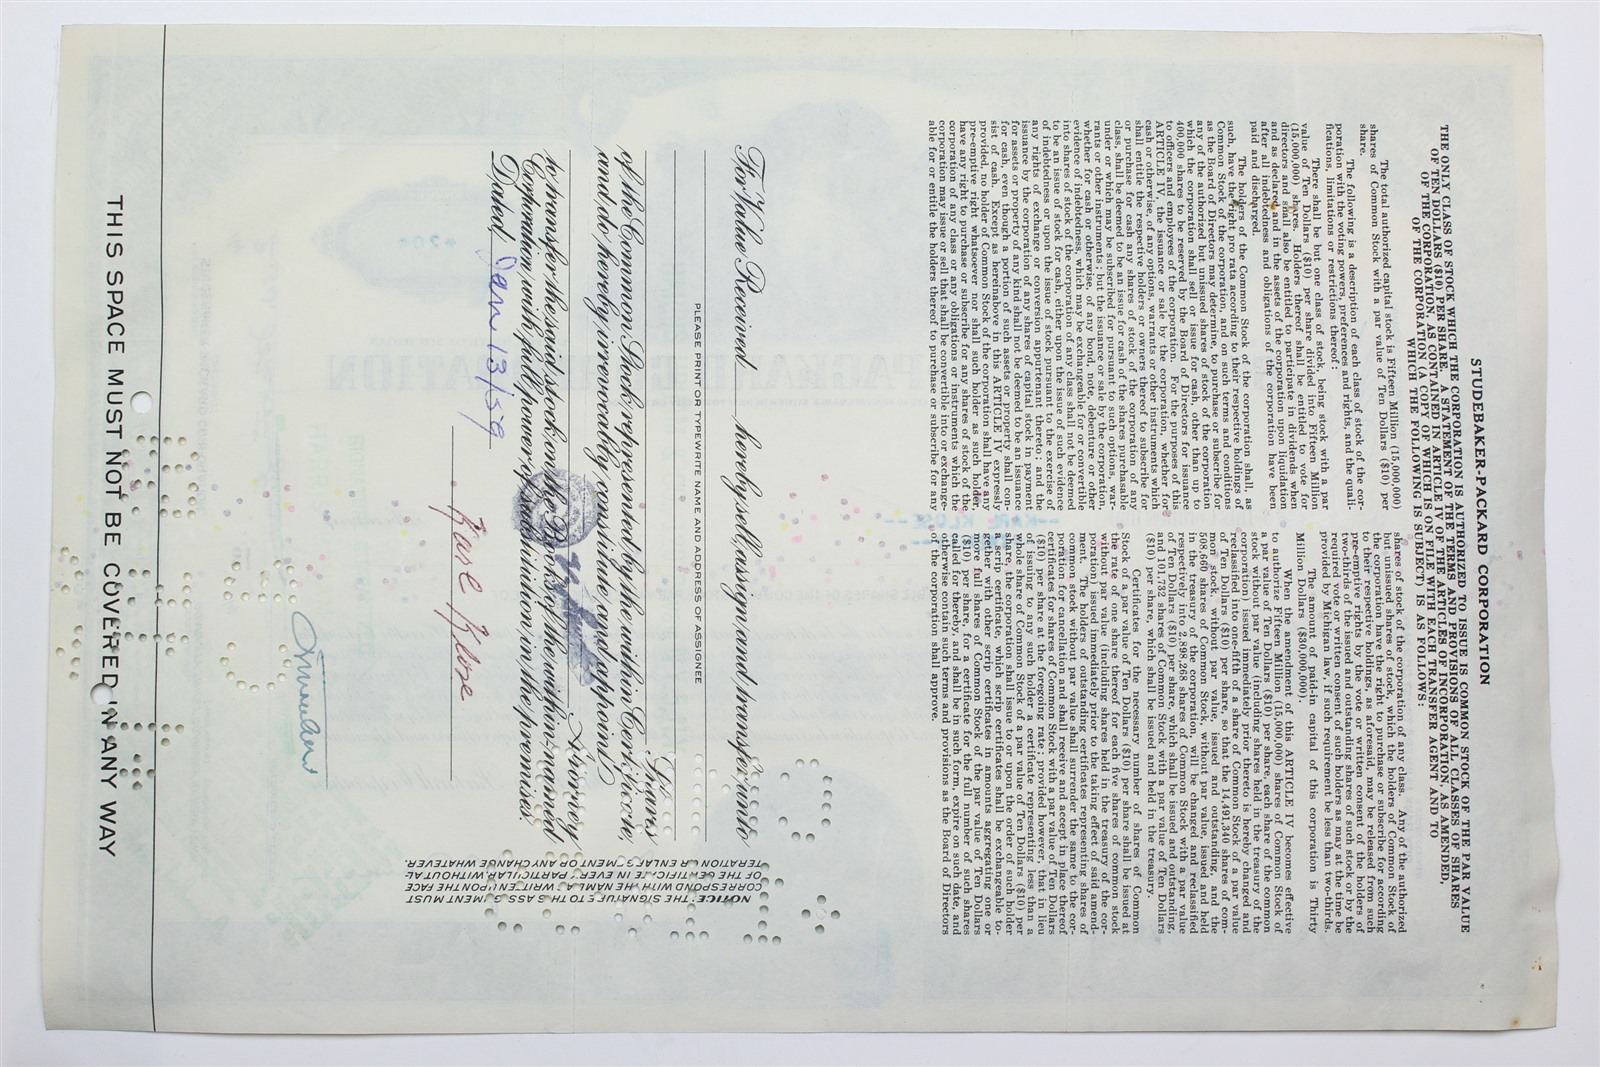 STUDEBAKER-PACKARD CORPORATION
THE ONLY CLASS OF STOCK WHICH THE CORPORATION IS AUTHORIZED TO ISSUE IS COMMON STOCK OF THE PAR VALUE
OF TEN DOLLARS ($10) PER SHARE. A STATEMENT OF THE TERMS AND PROVISIONS OF ALL CLASSES OF SHARES
OF THE CORPORATION, AS CONTAINED IN ARTICLE IV OF THE ARTICLES OF INCORPORATION, AS AMENDED,
OF THE CORPORATION (A COPY OF WHICH IS ON FILE WITH EACH TRANSFER AGENT AND TO
WHICH THE FOLLOWING IS SUBJECT) IS AS FOLLOWS:
The total authorized capital stock is Fifteen Million (15,000,000)
shares of Common Stock with a par value of Ten Dollars ($10) per
share.
The following is a description of each class of stock of the cor-
poration with the voting powers, preferences and rights, and the quali-
fications, limitations or restrictions thereof:
There shall be but one class of stock, being stock with a par
value of Ten Dollars ($10) per share divided into Fifteen Million
(15,000,000) shares. Holders thereof shall be entitled to vote for
directors and shall also be entitled to participate in dividends when
and as declared and in the assets of the corporation upon liquidation
after all indebtedness and obligations of the corporation have been
paid and discharged.
The holders of the Common Stock of the corporation shall, as
such, have the right pro rata according to their respective holdings of
Common Stock of the corporation, and on such terms and conditions
as the Board of Directors may determine, to purchase or subscribe for
any of the authorized but unissued shares of stock of the corporation
which the corporation shall sell or issue for cash, other than up to
400,000 shares to be reserved by the Board of Directors for issuance
to officers and employees of the corporation. For the purposes of this
ARTICLE IV, the issuance or sale by the corporation, whether for
cash or otherwise, of any options, warrants or other instruments which
shall entitle the respective holders or owners thereof to subscribe for
or purchase for cash any shares of stock of the corporation of any
class, shall be deemed to be an issue for cash of the shares purchasable
under or which may be subscribed for pursuant to such options, war-
rants or other instruments; but the issuance or sale by the corporation,
whether for cash or otherwise, of any bond, note, debenture or other
evidence of indebtedness, which may be exchangeable for or convertible
into shares of stock of the corporation of any class shall not be deemed
to be an issue of stock for cash, either upon the issue of such evidence
of indebtedness or upon the issue of stock pursuant to the exercise of
any rights of exchange or conversion appurtenant thereto; and the
issuance by the corporation of any shares of capital stock in payment
for assets or property of any kind shall not be deemed to be an issuance
for cash, even though a portion of such assets or property shall con-
sist of cash. Except as hereinabove in this ARTICLE IV expressly
provided, no holder of Common Stock of the corporation shall have any
pre-emptive right whatsoever nor shall such holder as such holder,
have any right to purchase or subscribe for any shares of stock of the
corporation of any class or any obligations or instruments which the
corporation may issue or sell that shall be convertible into or exchange-
able for or entitle the holders thereof to purchase or subscribe for any
shares of stock of the corporation of any class. Any of the authorized
but unissued shares of stock, which the holders of Common Stock of
the corporation have the right to purchase or subscribe for according
to their respective holdings, as aforesaid, may be released from such
pre-emptive rights by the vote or written consent of the holders of
two-thirds of the issued and outstanding shares of such stock or by the
required vote or written consent of such holders as may at the time be
provided by Michigan law, if such requirement be less than two-thirds.
The amount of paid-in capital of this corporation is Thirty
Million Dollars ($30,000,000).
When the amendment of this ARTICLE IV becomes effective
to authorize Fifteen Million (15,000,000) shares of Common Stock of
a par value of Ten Dollars ($10) per share, each share of the common
stock without par value (including shares held in the treasury of the
corporation) issued immediately prior thereto is hereby changed and
reclassified into one-fifth of a share of Common Stock of a par value
of Ten Dollars ($10) per share, so that the 14,491,340 shares of com-
mon stock, without par value, issued and outstanding, and the
508,660 shares of Common Stock, without par value, issued and held
in the treasury of the corporation, will be changed and reclassified
respectively into 2,898,268 shares of Common Stock with a par value
of Ten Dollars ($10) per share, which shall be issued and outstanding,
and 101,732 shares of Common Stock with a par value of Ten Dollars
($10) per share, which shall be issued and held in the treasury.
Certificates for the necessary number of shares of Common
Stock of a par value of Ten Dollars ($10) per share shall be issued at
the rate of one share thereof for each five shares of common stock
without par value (including shares held in the treasury of the cor-
poration) issued immediately prior to the taking effect of said amend-
ment. The holders of outstanding certificates representing shares of
common stock without par value shall surrender the same to the cor-
poration for cancellation and shall receive and accept in place thereof
certificates for shares of Common Stock with a par value of Ten Dollars
($10) per share at the foregoing rate; provided however, that in lieu
of issuing to any such holder a certificate representing less than a
whole share of Common Stock of a par value of Ten Dollars ($10) per
share, the corporation shall issue to or upon the order of such holder
a scrip certificate which scrip certificates shall be exchangeable to-
gether with other scrip certificates in amounts aggregating one or
more full shares of Common Stock of the par value of Ten Dollars
($10) per share, for a certificate for the full number of such shares
called for thereby, and shall be in such form, expire on such date, and
otherwise contain such terms and provisions as the Board of Directors
of the corporation shall approve.
For Value Received hereby sell, assign and transfer unto
PLEASE PRINT OR TYPEWRITE NAME AND ADDRESS OF ASSIGNEE
Shares
of the Common Stock represented by the within Certificate,
and do hereby irrevocably constitute and appoint
Attorney
to transfer the said stock on the Books of the within-named
Corporation with full power of substitution in the premises.
Dated, Jan 13/59
Karl Klose
NOTICE: THE SIGNATURE TO THIS ASSIGNMENT MUST
CORRESPOND WITH THE NAME AS WRITTEN UPON THE FACE
OF THE CERTIFICATE IN EVERY PARTICULAR, WITHOUT AL-
TERATION OR ENLARGEMENT OR ANY CHANGE WHATEVER.
THIS SPACE MUST NOT BE COVERED IN ANY WAY